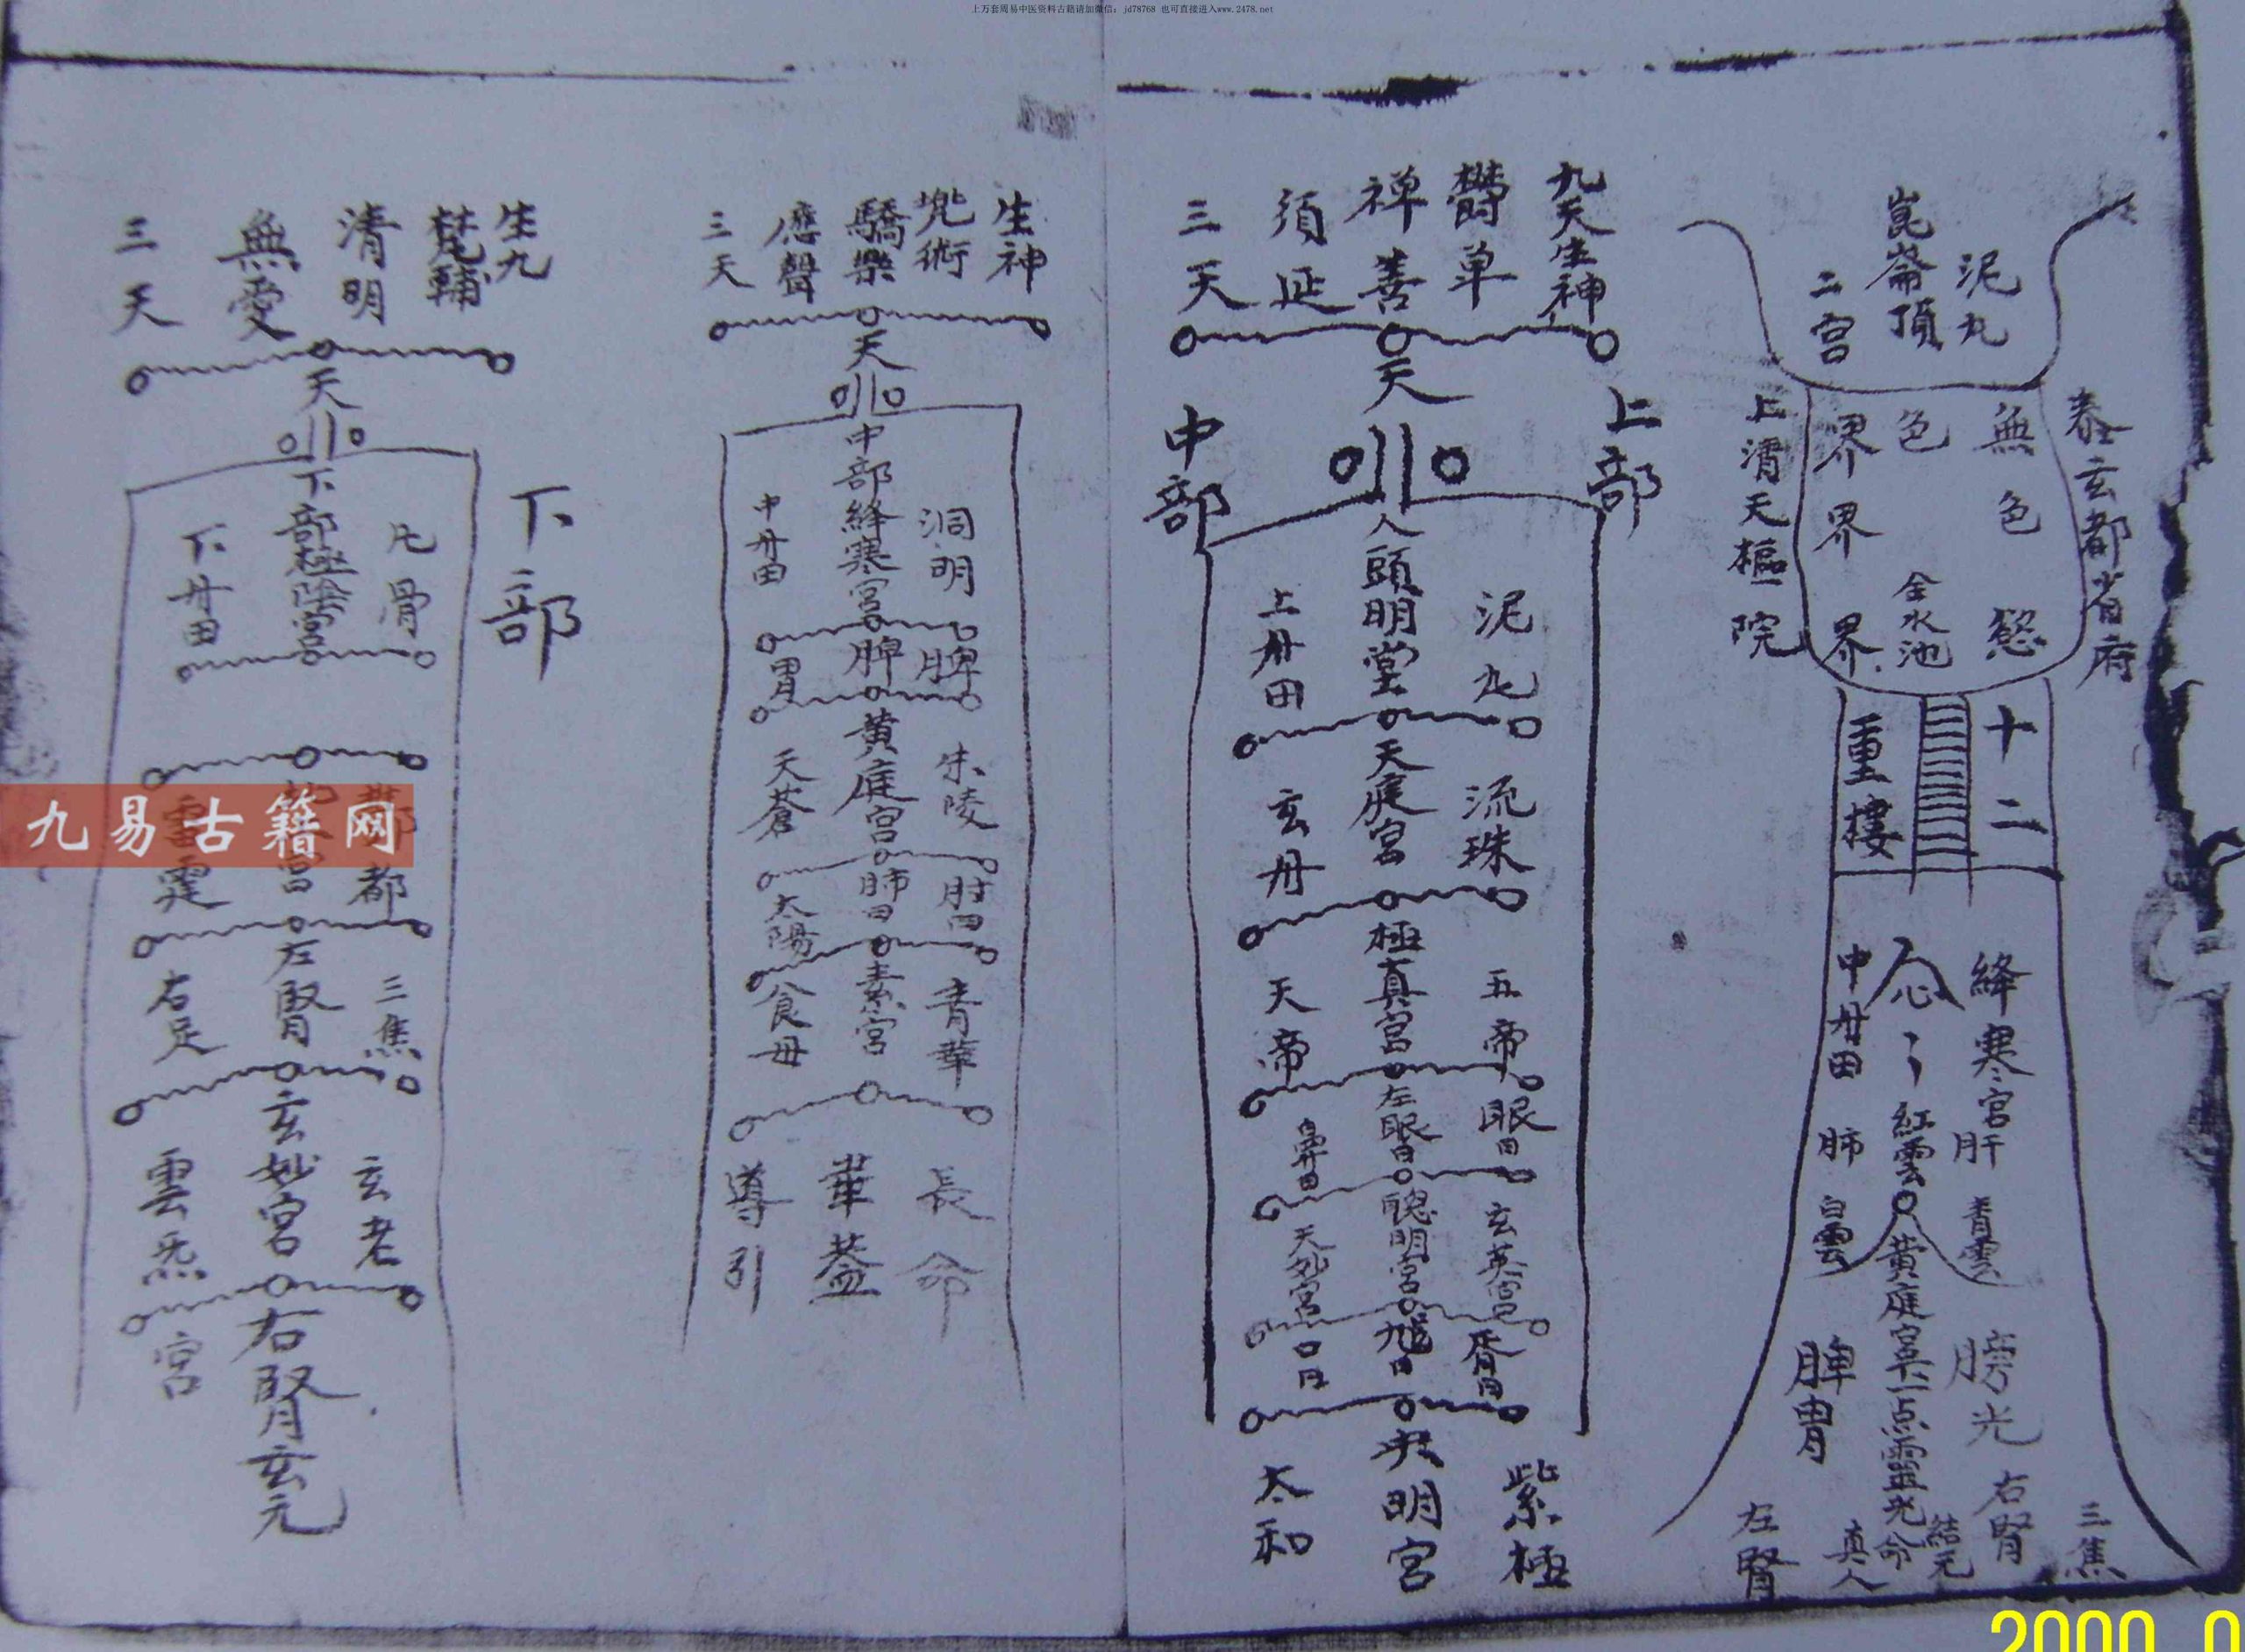 上万套周易中医资料古籍请加微信：jd78768 也可直接进入www.2478.net
泥丸
崑崙頂
二宫
泰玄都省府
無色慾
色
金水池
界界界
上清天樞院
十二
重樓
絳寒宮
心
中丹田
肝
青雲
紅雲
肺
白雲
黃庭宮
一点靈光
膀光
脾胃
三焦
右腎
結元
命
真人
左腎
九天生神
欝單
禅善
須延
三天
天
上部
中部
人頭明堂
泥丸
上丹田
天庭宮
流珠
玄丹
極真宮
五帝
天帝
左眼日
眼日
聰明宮
玄英宮
口日
紫極
明宮
太和
生神
兜術
驕樂
應聲
三天
天
中部絳寒宮
洞明
中丹田
脾
脾
胃
黃庭宮
朱陵
天蒼
肺日
太陽
素宮
青華
食母
長命
華蓋
導引
生九
梵輔
清明
無愛
三天
天
下部
下部極陰宮
骨
下丹田
都
宮
霆
九易古籍网
左腎
三焦
右足
玄妙宮
玄老
雲炁
右腎玄元
宮
2000